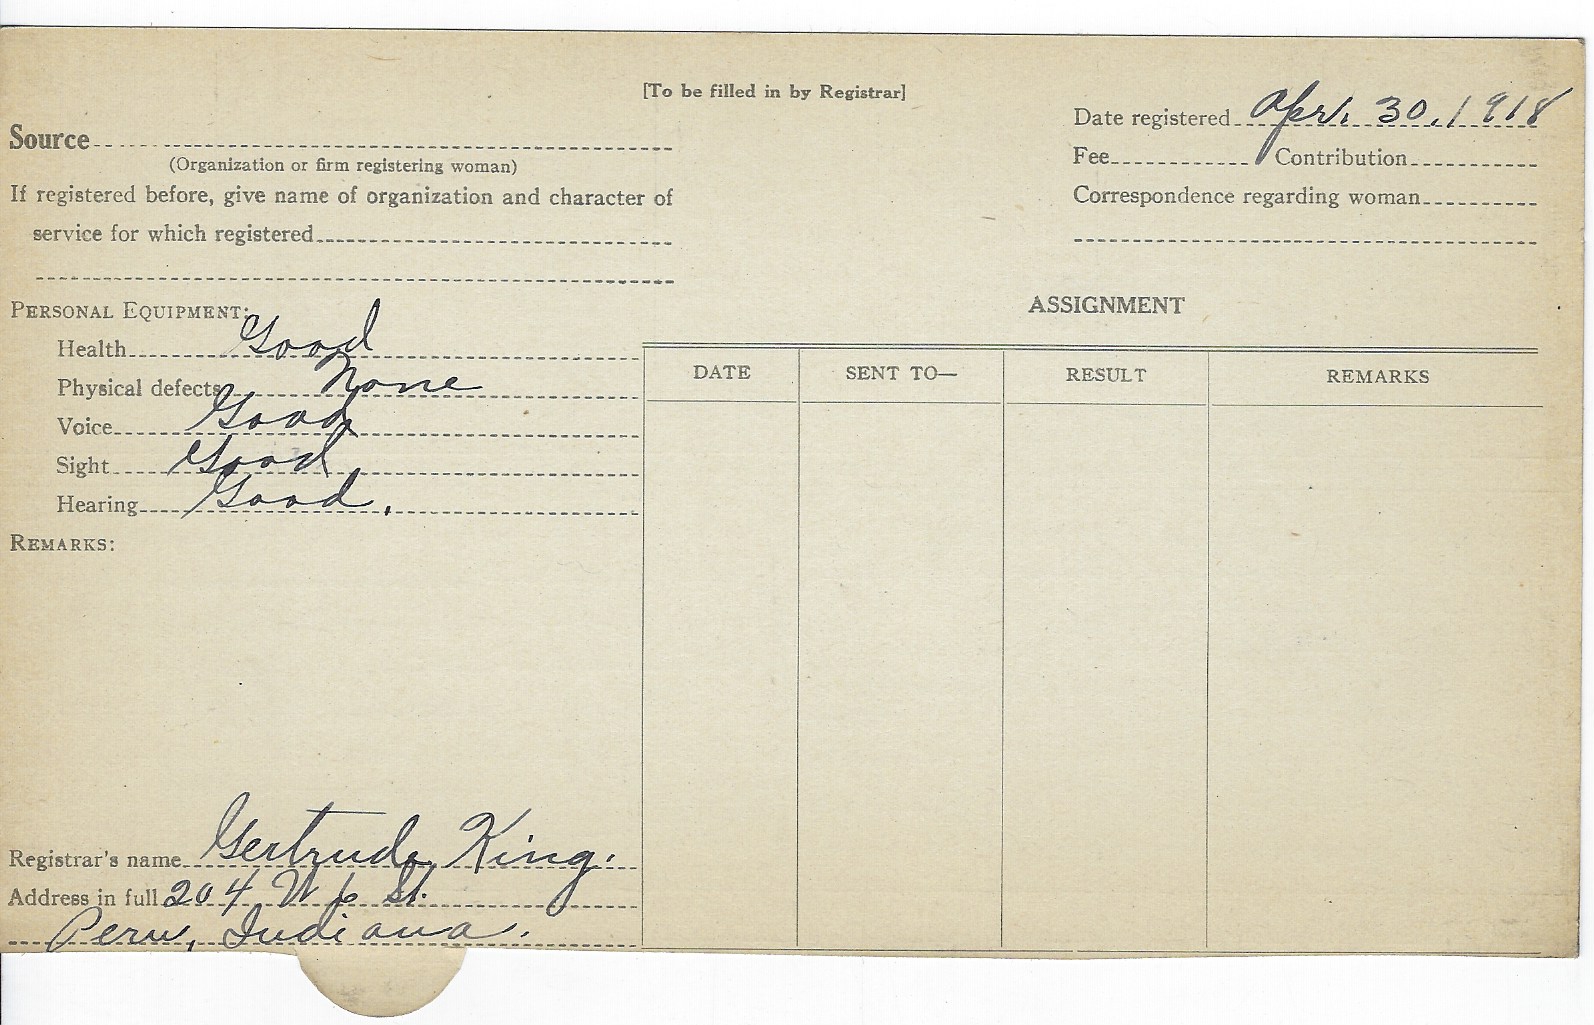 [To be filled in by Registrar]
Source
(Organization or firm registering woman)
If registered before, give name of organization and character of
service for which registered
Date registered Apr. 30, 1918
Fee Contribution
Correspondence regarding woman
PERSONAL EQUIPMENT:
Health Good
Physical defects None
Voice Good
Sight Good
Hearing Good.
REMARKS:
ASSIGNMENT
DATE SENT TO— RESULT REMARKS
Registrar's name Gertrude King.
Address in full 204 W 6 St.
Peru, Indiana.